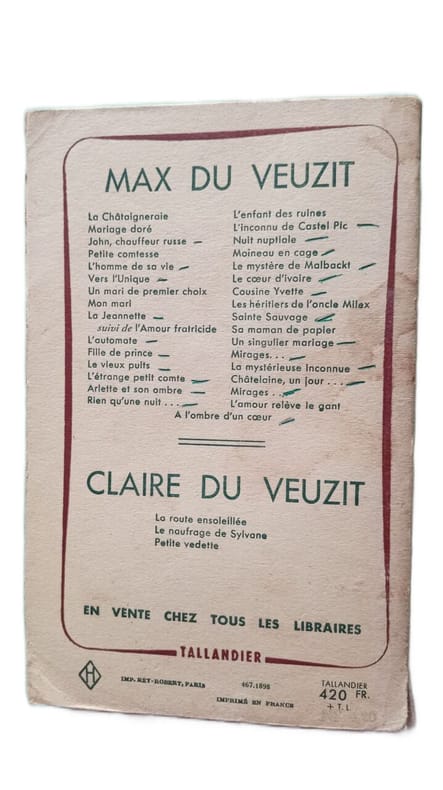 MAX DU VEUZIT
La Châtaigneraie
Mariage doré
John, chauffeur russe
Petite comtesse
L'homme de sa vie
Vers l'Unique
Un mari de premier choix
Mon mari
La Jeannette
suivi de l'Amour fratricide
L'automate
Fille de prince
Le vieux puits
L'étrange petit comte
Arlette et son ombre
Rien qu'une nuit . . .
L'enfant des ruines
L'inconnu de Castel Pic
Nuit nuptiale
Moineau en cage
Le mystère de Malbackt
Le cœur d'ivoire
Cousine Yvette
Les héritiers de l'oncle Milex
Sainte Sauvage
Sa maman de papier
Un singulier mariage
Mirages. . .
La mystérieuse Inconnue
Châtelaine, un jour . . .
Mirages . . .
L'amour relève le gant
A l'ombre d'un cœur
CLAIRE DU VEUZIT
La route ensoleillée
Le naufrage de Sylvane
Petite vedette
EN VENTE CHEZ TOUS LES LIBRAIRES
TALLANDIER
H
IMP. REY-ROBERT, PARIS
467.1898
IMPRIMÉ EN FRANCE
TALLANDIER
420 FR.
+ T. L.